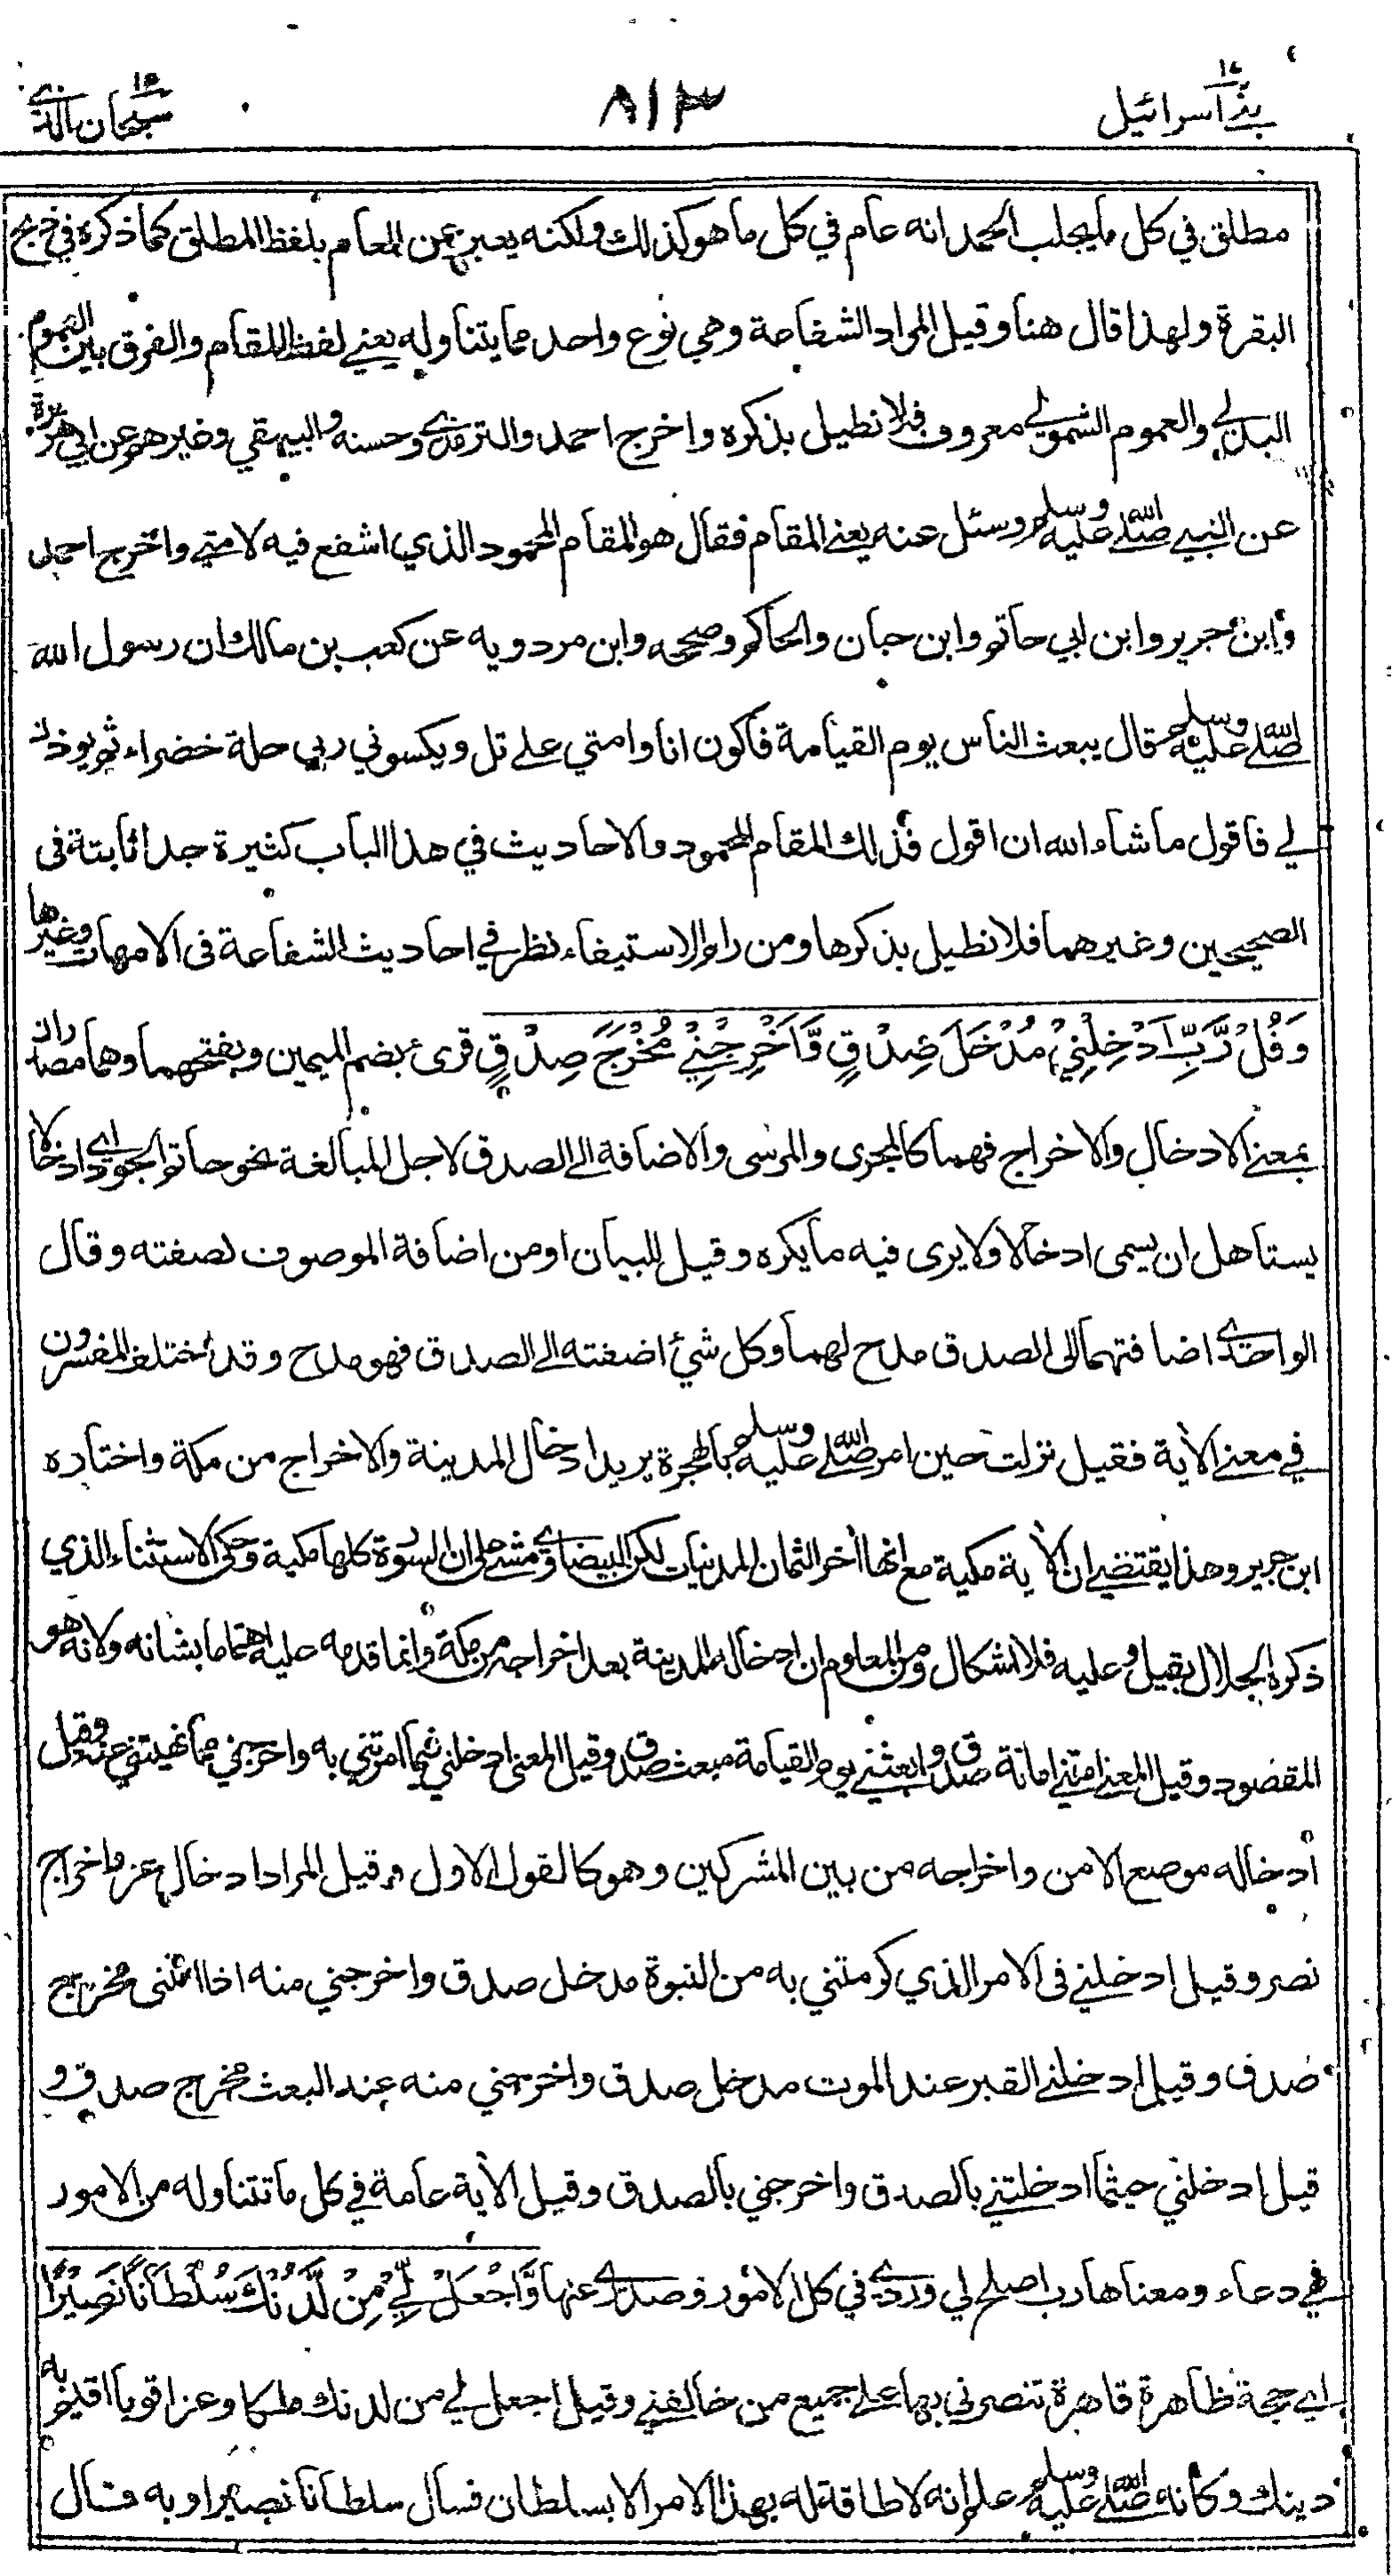 بني اسرائيل ١٧
٨١٣
سبحان الذي ١٥
مطلق في كل ما يجلب الحمد انه عام في كل ما هو كذلك ولكنه يعبر عن العام بلفظ المطلق كما ذكره في ذبح
البقرة ولهذا قال هنا وقيل المراد الشفاعة وهي نوع واحد مما يتناوله يعني لفظ المقام والفرق بين العموم
البدلي والعموم الشمولي معروف فلا نطيل بذكره واخرج احمد والترمذي وحسنه والبيهقي وغيرهم عن ابي هريرة
عن النبي صلى الله عليه وسلم وسئل عنه يعني المقام فقال هو المقام المحمود الذي اشفع فيه لامتي واخرج احمد
وابن جرير وابن ابي حاتم وابن حبان والحاكم وصححه وابن مردويه عن كعب بن مالك ان رسول الله
صلى الله عليه وسلم قال يبعث الناس يوم القيامة فاكون انا وامتي على تل ويكسوني ربي حلة خضراء ثم يوذن
لي فاقول ما شاء الله ان اقول فذلك المقام المحمود والاحاديث في هذا الباب كثيرة جدا ثابتة في
الصحيحين وغيرهما فلا نطيل بذكرها ومن رام الاستيفاء نظر في احاديث الشفاعة في الامهات وغيرها
وَقُلْ رَّبِّ اَدْخِلْنِيْ مُدْخَلَ صِدْقٍ وَّاَخْرِجْنِيْ مُخْرَجَ صِدْقٍ قرئ بضم الميمين وبفتحهما وهما مصدران
بمعنى الادخال والاخراج فهما كالمجرى والمرسى والاضافة الى الصدق لاجل المبالغة نحو حاتم الجود اي ادخالا
يستاهل ان يسمى ادخالا ولا يرى فيه ما يكره وقيل للبيان او من اضافة الموصوف لصفته وقال
الواحدي اضافتهما الى الصدق مدح لهما وكل شيء اضفته الى الصدق فهو مدح وقد اختلف المفسرون
في معنى الآية فقيل نزلت حين امر صلى الله عليه وسلم بالهجرة يريد ادخال المدينة والاخراج من مكة واختاره
ابن جرير وهذا يقتضي ان الآية مكية مع انها آخر الثمان المدنيات لكن البيضاوي مشى على ان السورة كلها مكية وحكى الاستثناء الذي
ذكره الجلال بقيل وعليه فلا اشكال ومن المعلوم ان ادخاله المدينة بعد اخراجه من مكة وانما قدمه عليه اهتماما بشانه ولانه هو
المقصود وقيل المعنى امتني اماتة صدق وابعثني يوم القيامة مبعث صدق وقيل المعنى ادخلني فيما امرتني به واخرجني مما نهيتني عنه وقيل
ادخاله موضع الامن واخراجه من بين المشركين وهو كالقول الاول وقيل المراد ادخال عز واخراج
نصر وقيل ادخلني في الامر الذي كرمتني به من النبوة مدخل صدق واخرجني منه اذا امتني مخرج
صدق وقيل ادخلني القبر عند الموت مدخل صدق واخرجني منه عند البعث مخرج صدق و
قيل ادخلني حيثما ادخلتني بالصدق واخرجني بالصدق وقيل الآية عامة في كل ما تتناوله من الامور
فهي دعاء ومعناها رب اصلح لي وردي في كل الامور وصدري عنها وَّاجْعَلْ لِّيْ مِنْ لَّدُنْكَ سُلْطَانًا نَصِيْرًا
اي حجة ظاهرة قاهرة تنصرني بها على جميع من خالفني وقيل اجعل لي من لدنك ملكا وعزا قويا اقيم به
دينك وكانه صلى الله عليه وسلم علم انه لا طاقة له بهذا الامر الا بسلطان فسال سلطانا نصيرا وبه قال